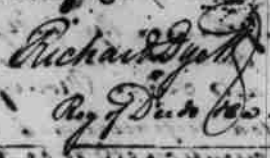 Richard Dyett
Reg of Deeds